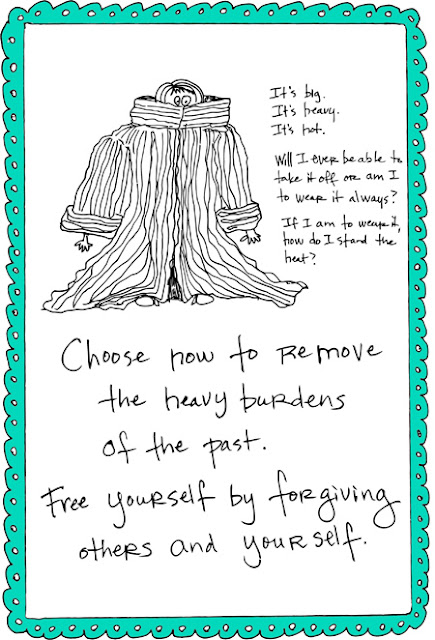 It's big.
It's heavy.
It's hot.
Will I ever be able to
take it off or am I
to wear it always?
If I am to wear it,
how do I stand the
heat?
Choose now to remove
the heavy burdens
of the past.
Free yourself by forgiving
others and yourself.